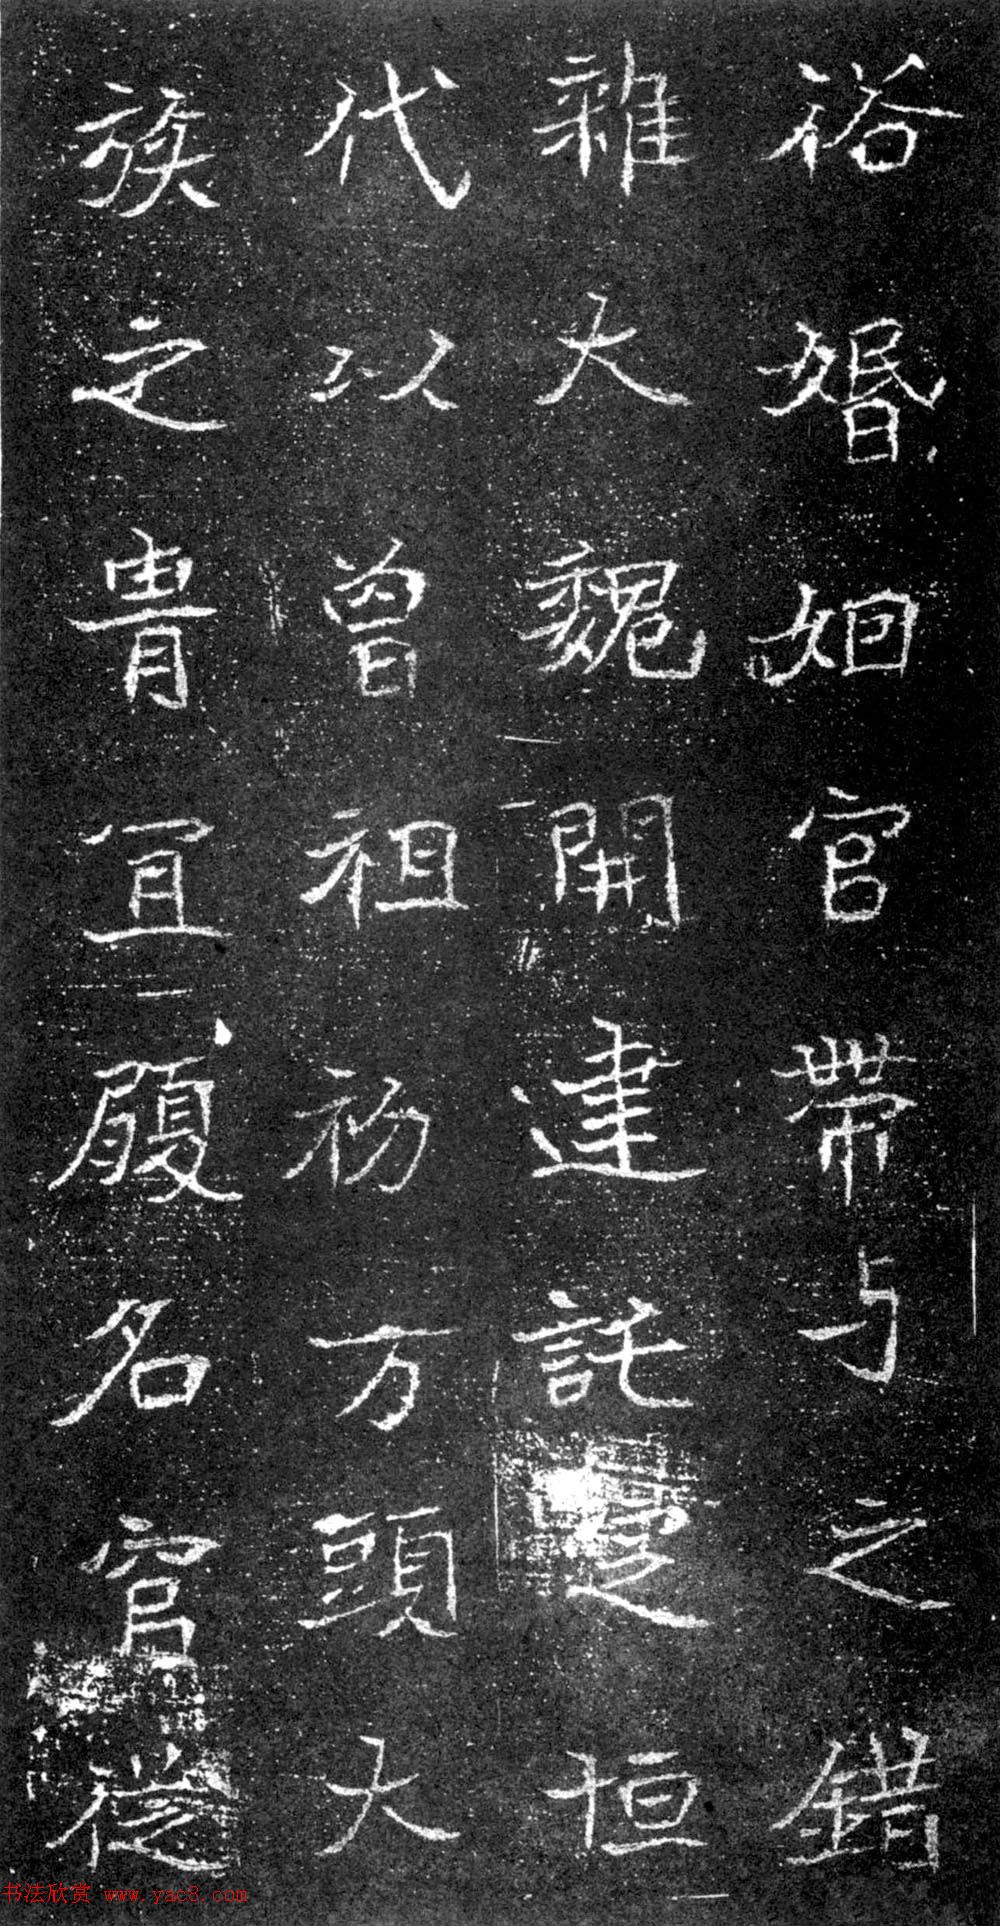 俗婚姻官帶与之錯
雜大魏開建託定恒
代以曾祖初方頭大
族之胄宜履名官從
书法欣赏 www.yac8.com